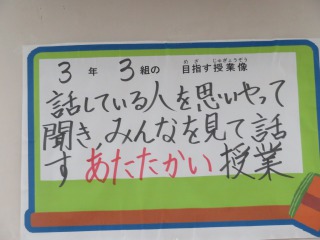 3年 3組の 目指す授業像
話している人を思いやって
聞き、みんなを見て話
す あたたかい 授業